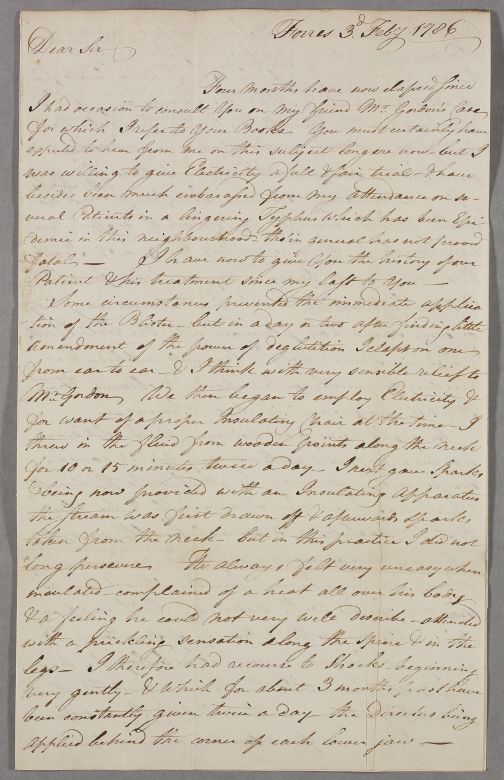 Forres 3d Feby 1786
Dear Sir
Four months have now elapsed since
I had occasion to consult you on my friend Mr Gordon's Case
for which I refer to your Books. You must certainly have
expected to hear from me on this subject long ere now but I
was willing to give Electricity a full & fair trial - & have
besides been much embarassed from my attendance on se-
veral Patients in a lingering Typhus which has been Epi-
demic in this neighbourhood, tho in general has not proved
fatal - I have now to give you the history of our
Patient & his treatment since my last to you -
Some circumstances prevented the immediate applica
tion of the Blister - but in a day or two after finding little
amendment of the power of deglutition I clapt on one
from ear to ear - & I think with very sensible relief to
Mr Gordon, We then began to employ Electricity &
for want of a proper Insulating Chair at the time - I
threw in the fluid from wooden points along the neck
for 10 or 15 minutes twice a day. I next gave Sparks
& being now provided with an Insulating Apparatus
the stream was first drawn off & afterwards sparks
taken from the neck - but in this practice I did not
long persevere He always felt very uneasy when
insulated - complained of a heat all over his body
& a feeling he could not very well describe - attended
with a prickling sensation along the spine & in the
legs - I therefore had recourse to Shocks beginning
very gently - & which for about 3 months past have
been constantly given twice a day the Directors being
applied behind the corner of each lower jaw -